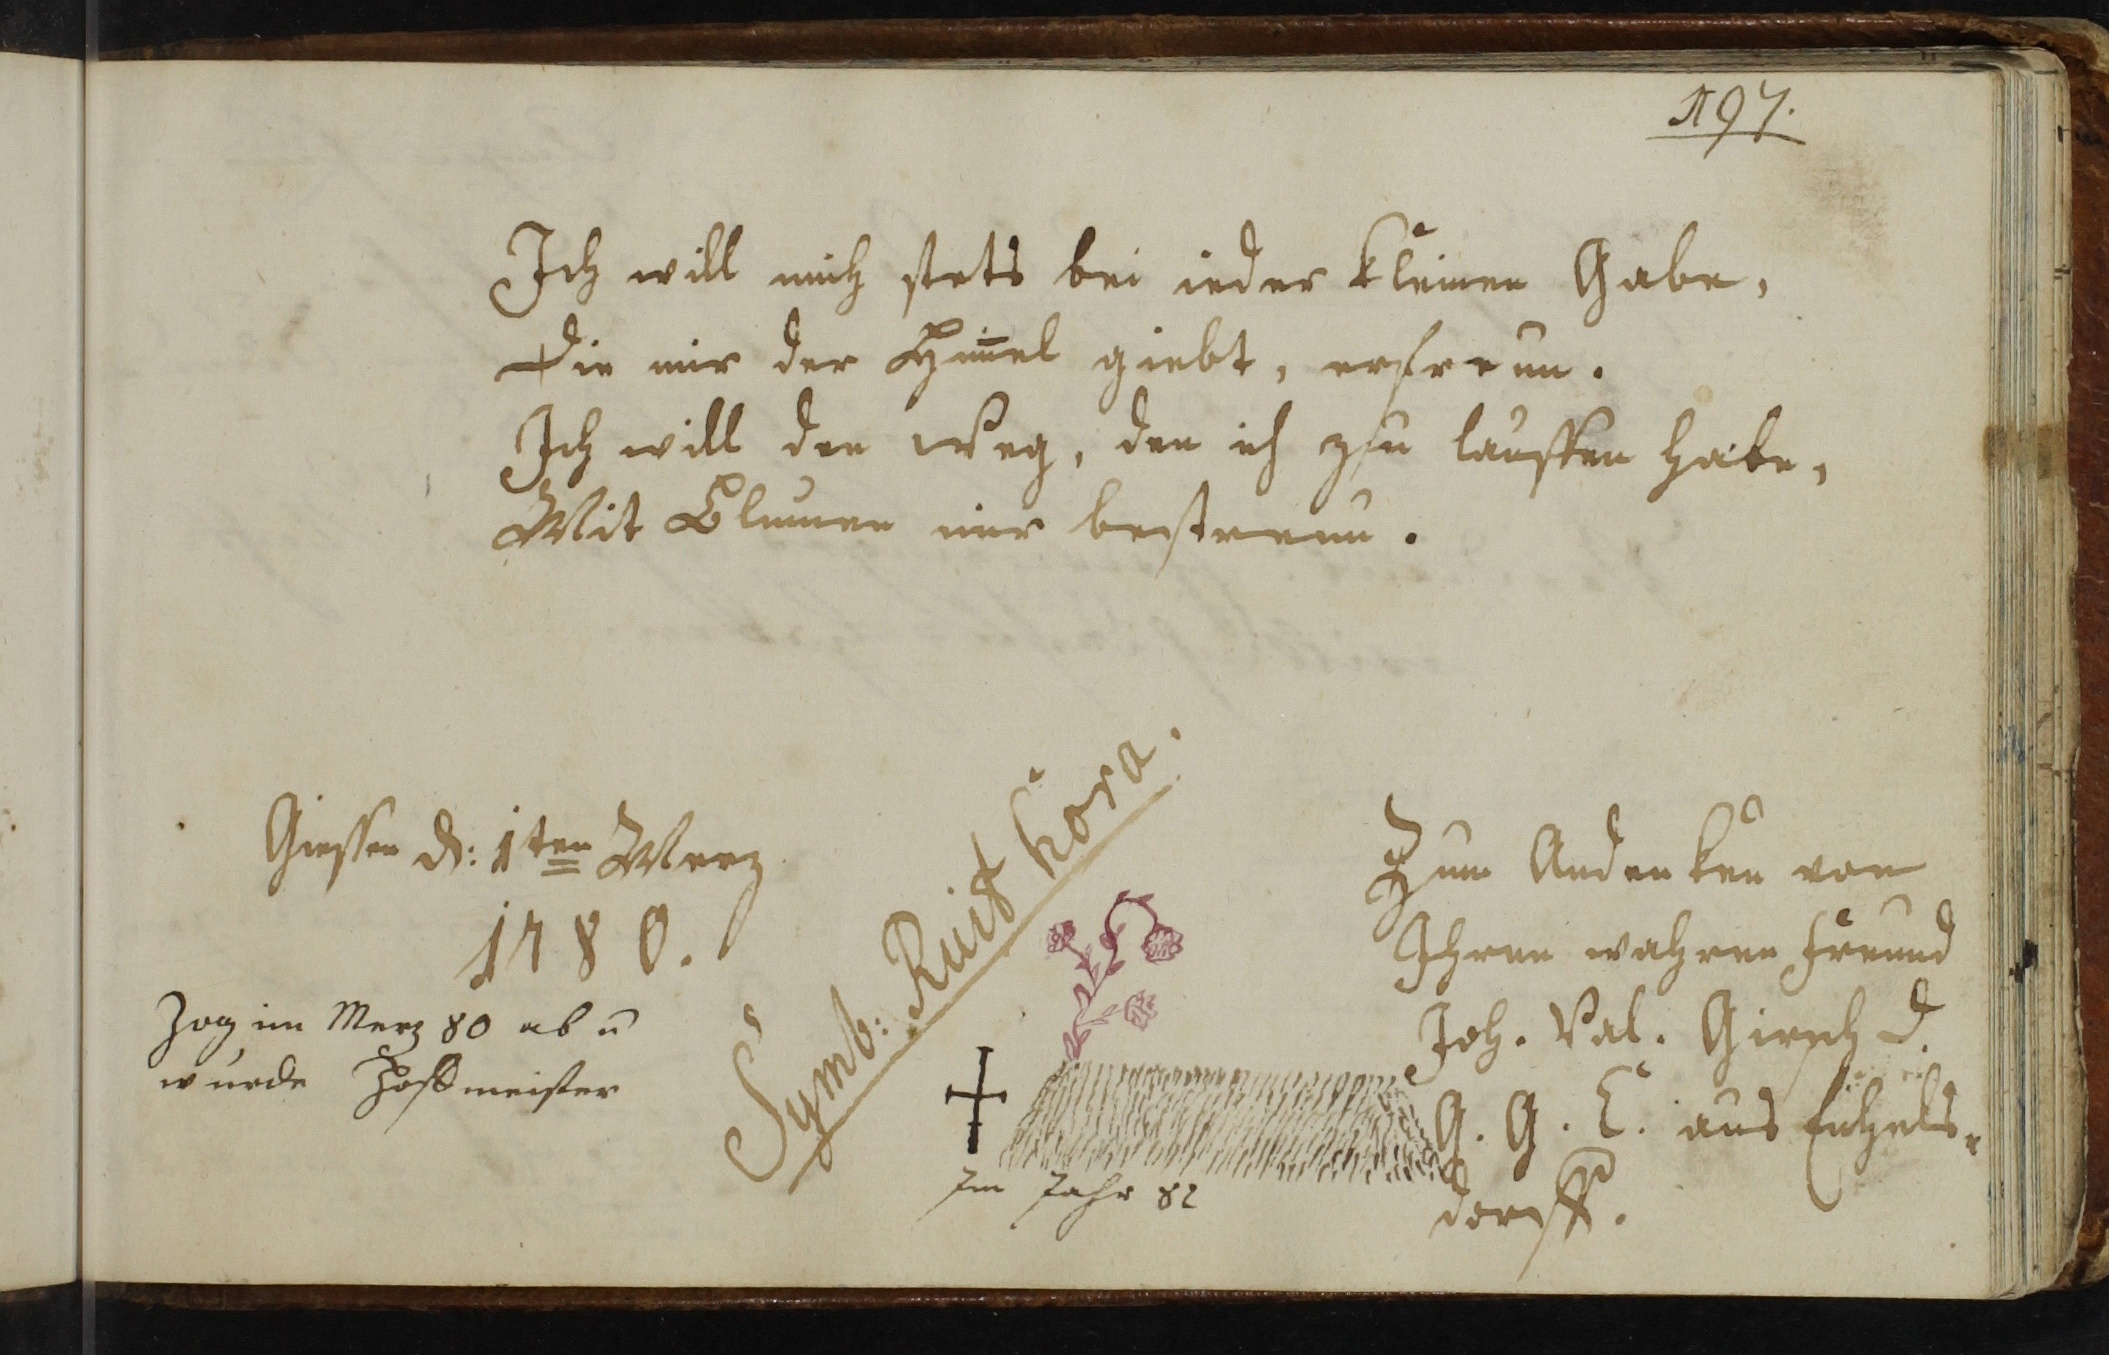 197.
Ich will mich stets bei ieder kleinen Gabe,
Die mir der Him̄el giebt, erfreun.
Ich will den Weg, den ich zu lauffen habe,
Mit Blumen mir bestreun.
Giessen d: 1ten Merz
1780.
Zog im Merz 80 ab u
wurde Hoffmeister
Symb: Ruit hora.
Im Jahr 82
Zum Andenken von
Ihren wahren Freund
Joh. Val. Girsch d.
G. G. B. aus Eichels-
dorff.